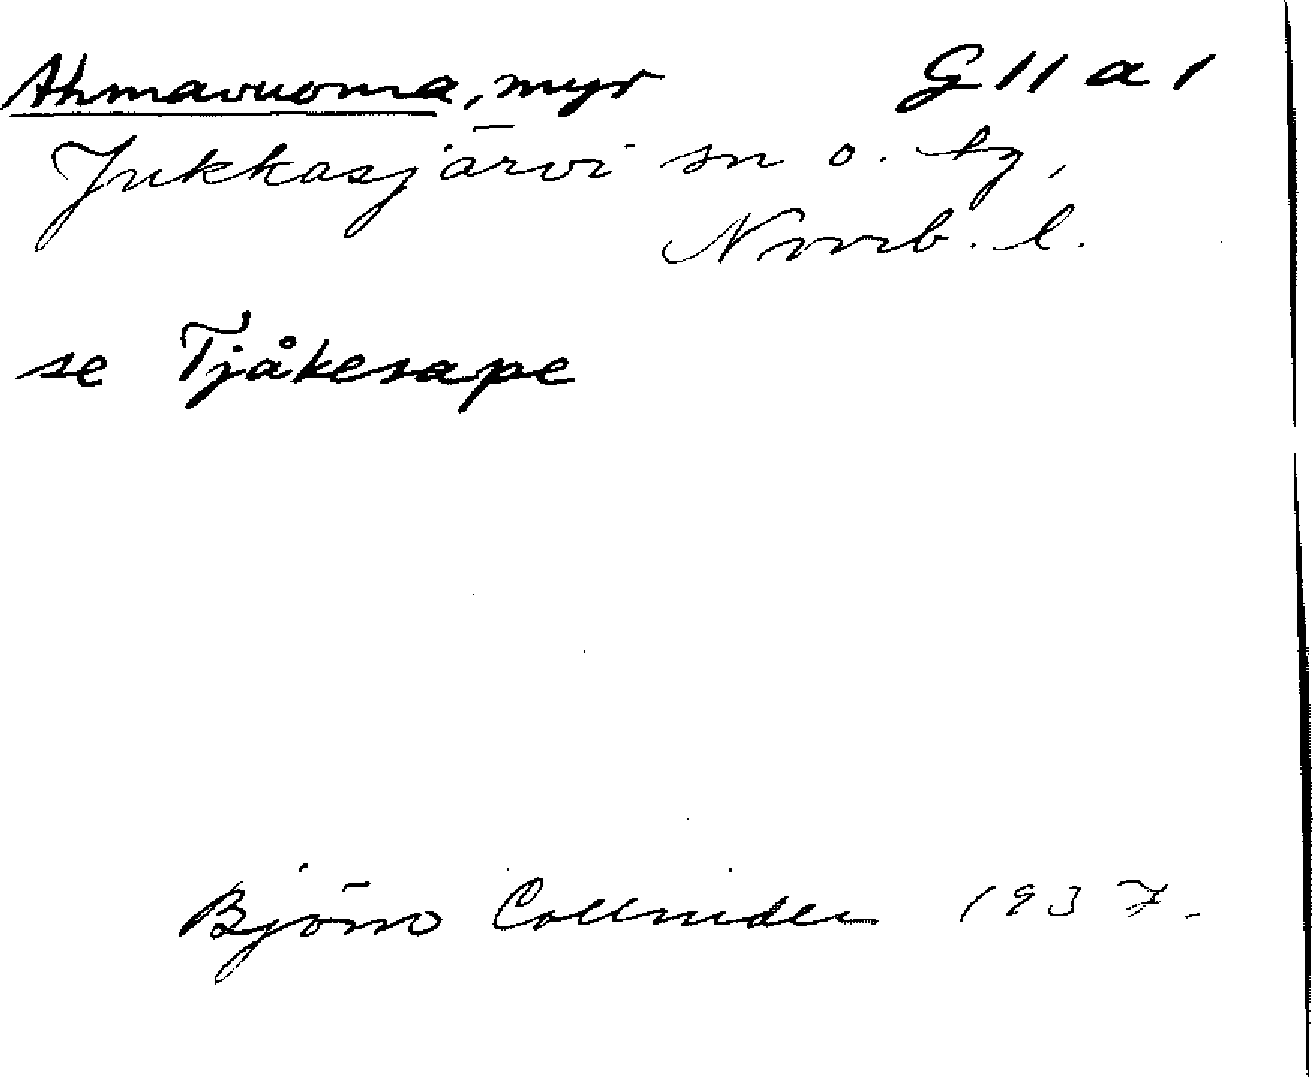 Ahmavuoma, myr G 11 a 1
Jukkasjärvi sn o. tg,
Norrb. l.
se Tjåkesape
Björn Collinder 1937.